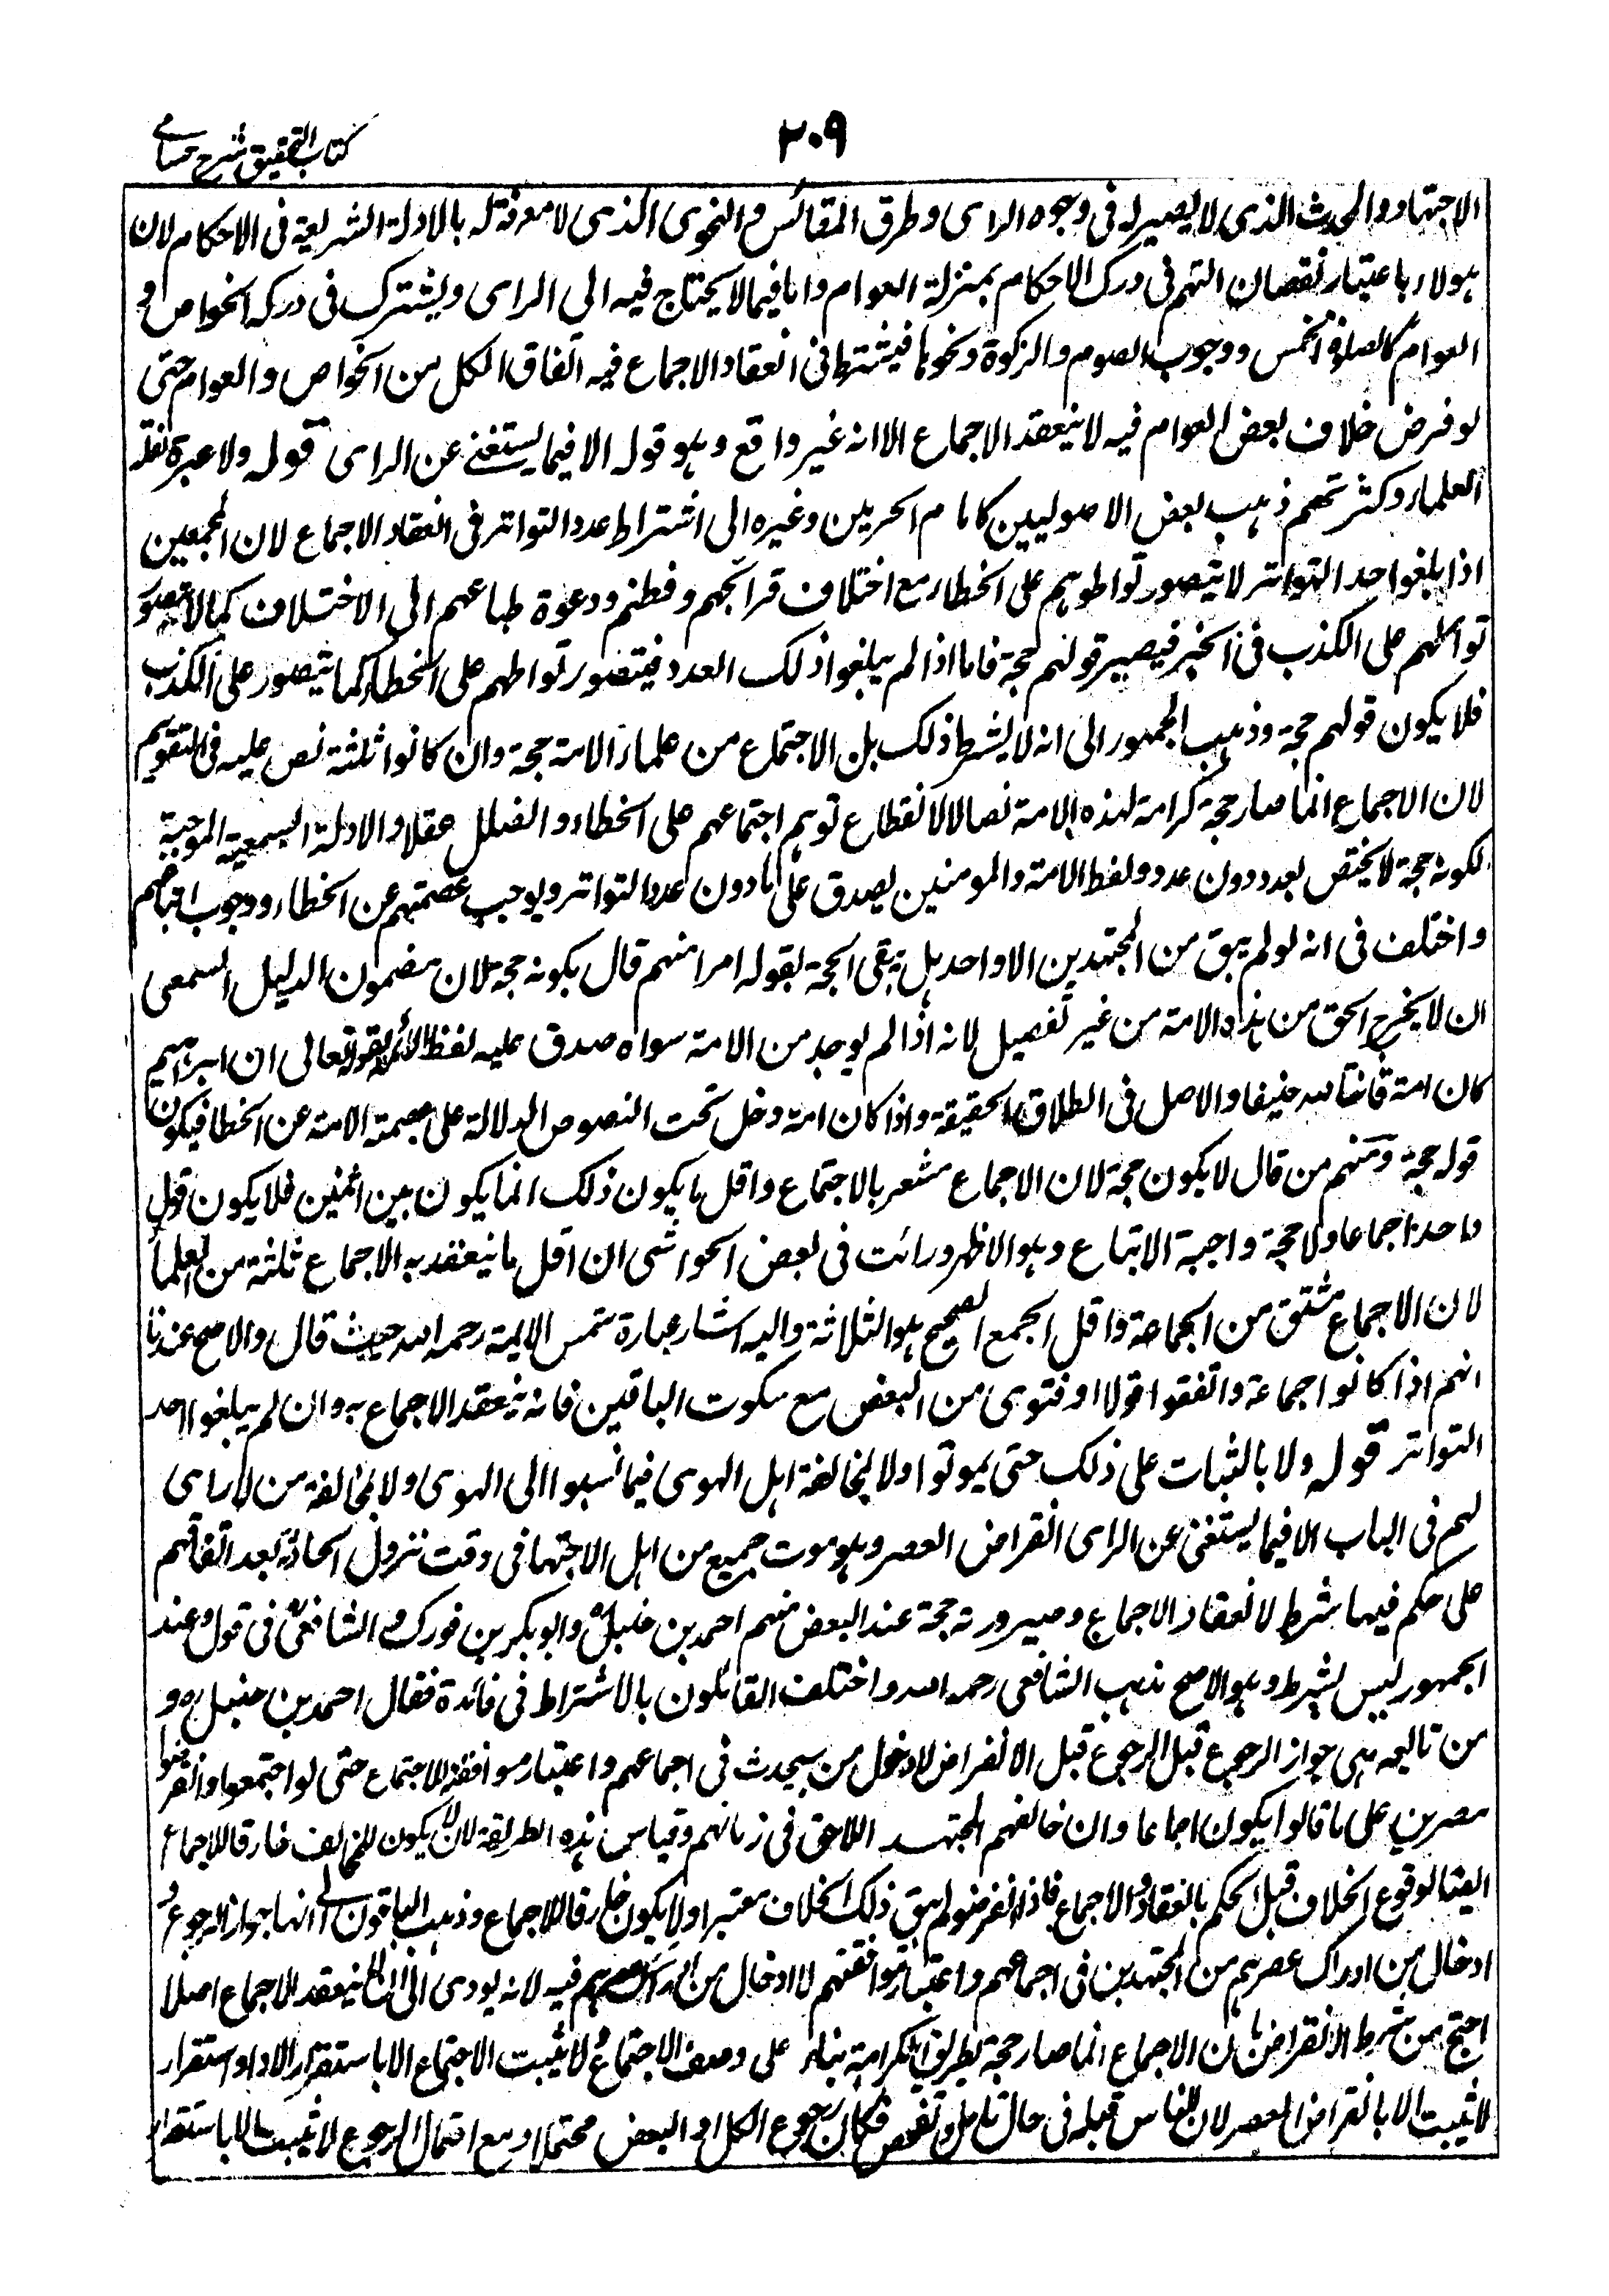 كتاب التحقيق شرح حسامي
٢٠٩
الاجتهاد والمحدث الذي لا بصيرة له في وجوه الراى وطرق المقائس والنحوى الذى لا معرفة له بالادلة الشرعية فى الاحكام لان
هولاء باعتبار نقصان التهم فى درك الاحكام بمنزلة العوام واما فيما لا يحتاج فيه الى الراى ويشترك فى دركه الخواص و
العوام كالصلوة الخمس ووجوب الصوم والزكوة ونحوها فيشترط فى انعقاد الاجماع فيه اتفاق الكل من الخواص والعوام حتى
لو فرض خلاف بعض العوام فيه لا ينعقد الاجماع الا انه غير واقع وهو قوله الا فيما يستغنى عن الراى قوله ولا عبرة لقلة
العلماء وكثرتهم ذهب بعض الاصوليين كامام الحرمين وغيره الى اشتراط عدد التواتر فى انعقاد الاجماع لان المجمعين
اذا بلغوا حد التواتر لا يتصور تواطوهم على الخطاء مع اختلاف قرائحهم وفطنهم ودعوة طباعهم الى الاختلاف كما لا يتصور
تواطهم على الكذب فى الخبر فيصير قولهم حجة فاما اذا لم يبلغوا ذلك العدد فيتصور تواطهم على الخطاء كما يتصور على الكذب
فلا يكون قولهم حجة وذهب الجمهور الى انه لا يشترط ذلك بل الاجتماع من علماء الامة حجة وان كانوا ثلثة نص عليه فى التقويم
لان الاجماع انما صار حجة كرامة لهذه الامة نصا لا لانقطاع توهم اجتماعهم على الخطاء والضلل عقلا والادلة السمعية الموجبة
لكونه حجة لا يختص بعدد دون عدد ولفظ الامة والمومنين يصدق على ما دون عدد التواتر ويوجب عصمتهم عن الخطاء ووجوب اتباعهم
واختلف فى انه لو لم يبق من المجتهدين الا واحد هل يبقى الحجة بقوله ام لا منهم قال بكونه حجة لان مضمون الدليل السمعى
ان لا يخرج الحق من هذه الامة من غير تفصيل لانه اذا لم يوجد من الامة سواه صدق عليه لفظ الامة لقوله تعالى ان ابرهيم
كان امة قانتا لله حنيفا والاصل فى الطلاق الحقيقة واذا كان امة دخل تحت النصوص الدلالة على عصمة الامة عن الخطا فيكون
قوله حجة ومنهم من قال لا يكون حجة لان الاجماع مشعر بالاجتماع واقل ما يكون ذلك انما يكون بين اثنين فلا يكون قول
واحد اجماعا ولا حجة واجبة الاتباع وهو الاظهر ورائت فى بعض الحواشى ان اقل ما ينعقد به الاجماع ثلثة من العلماء
لان الاجماع مشتق من الجماعة واقل الجمع الصحيح هو الثلاثة واليه اشار عبارة شمس الايمة رحمه الله حيث قال والاصح عندنا
انهم اذا كانوا جماعة واتفقوا قولا او فتوى من البعض مع سكوت الباقين فانه ينعقد الاجماع به وان لم يبلغوا حد
التواتر قوله ولا بالثبات على ذلك حتى يموتوا ولا لمخالفة اهل الهوى فيما نسبوا الى الهوى ولا لمخالفة من لا راى
لهم فى الباب الا فيما يستغنى عن الراى انقراض العصر وهو موت جميع من اهل الاجتهاد فى وقت نزول الحادثة بعد اتفاقهم
على حكم فيها شرط لانعقاد الاجماع وصيرورته حجة عند البعض منهم احمد بن حنبل وابو بكر بن فورك والشافعى فى قول وعند
الجمهور ليس بشرط وهو الاصح مذهب الشافعى رحمه الله واختلف القائلون بالاشتراط فى فائدة فقال احمد بن حنبل و
من تابعه هى جواز الرجوع قبل الرجوع قبل الانقراض لا دخول من سيحدث فى اجماعهم واعتبار موافقة للاجتماع حتى لو اجتمعوا وانقرضوا
مصرين على ما قالوا يكون اجماعا وان خالفهم المجتهد اللاحق فى زمانهم وقياس هذه الطريقة لان لا يكون المخالف خارقا للاجماع
ايضا لوقوع الخلاف قبل الحكم بانعقاد الاجماع فاذا انقرضوا لم يبق ذلك الخلاف معتبرا ولا يكون خارقا للاجماع وذهب الباقون الى انها جواز الرجوع و
ادخال من ادراك عصرهم من المجتهدين فى اجماعهم واعتبار موافقتهم لا ادخال من فيه لانه يودى الى ان لا ينعقد الاجماع اصلا
احتج من شرط الانقراض بان الاجماع انما صار حجة بطريق الكرامة بناء على وصف الاجتماع لا يثبت الاجتماع الا باستقرار الاراء واستقرار
لا يثبت الا بانقراض العصر لان الناس قبله فى حال تامل وتفحص فكان رجوع الكل او البعض محتملا ومع احتمال الرجوع لا يثبت الاستقرار